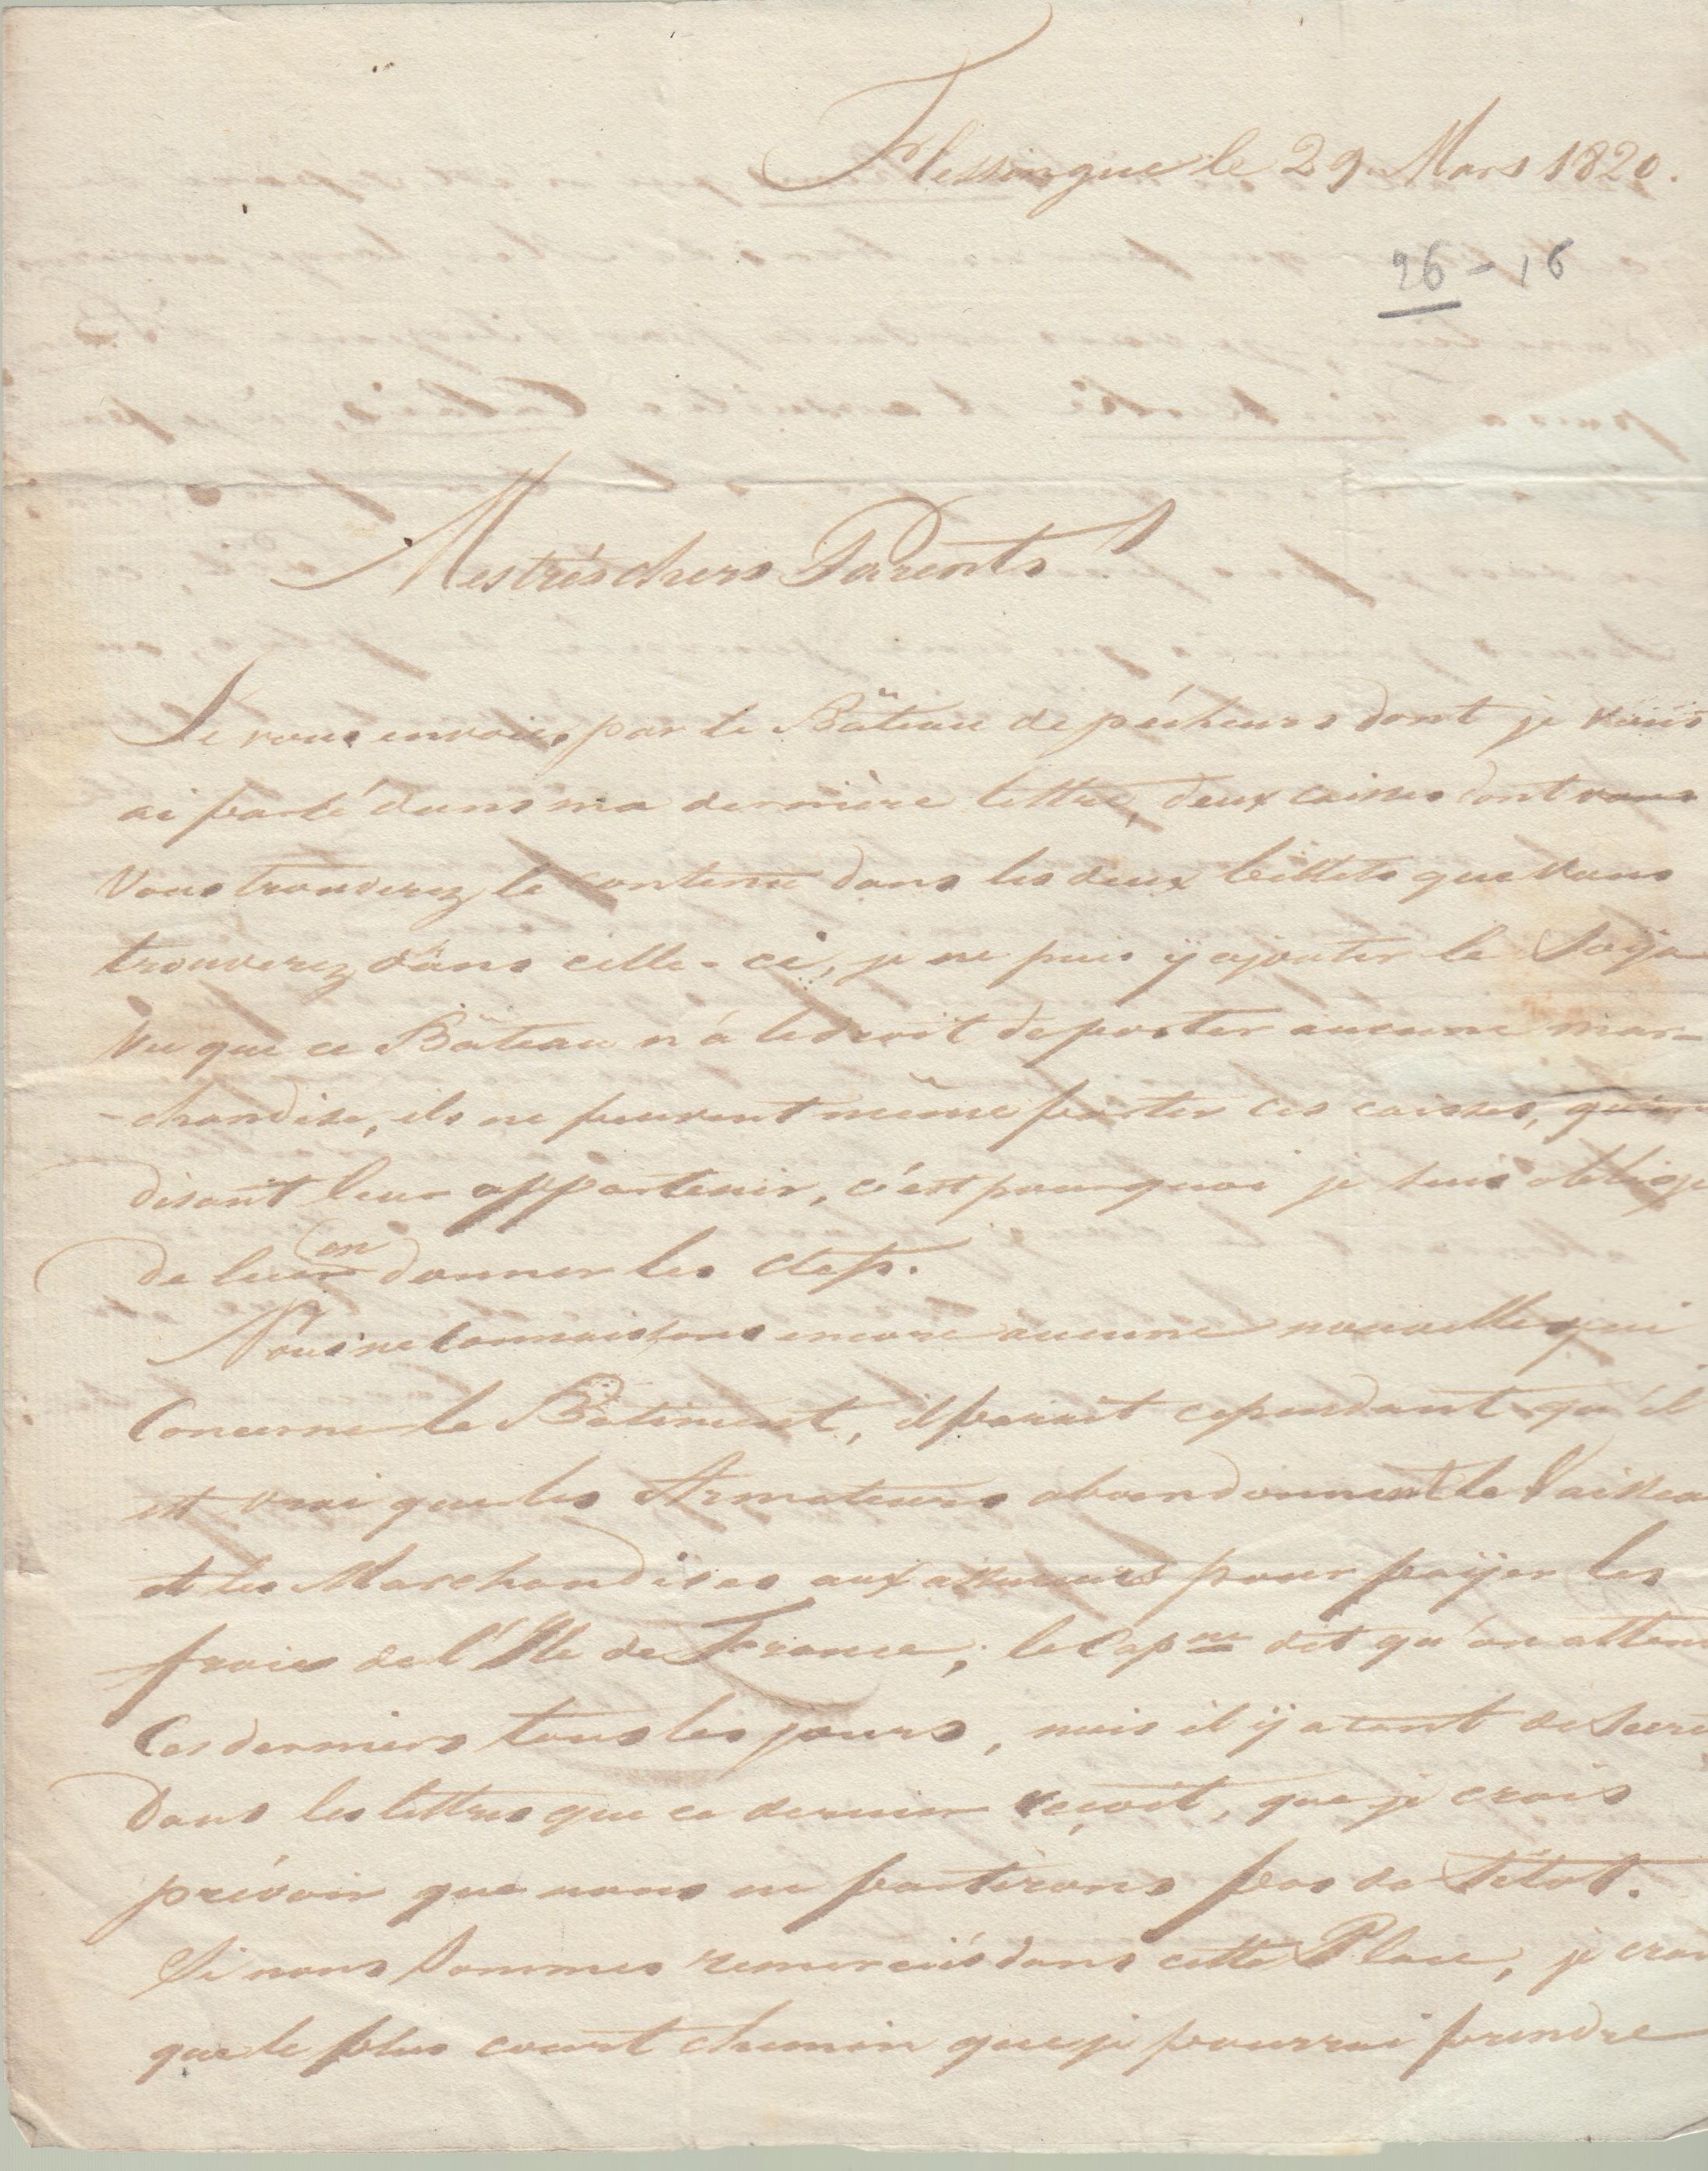 Flessingue le 29 Mars 1820.
26 - 16
Mes trés chers Parents
Je vous envoies par le Bâteau de pécheurs dont je vous
ai parlé dans ma dernière lettre, deux caisses dont vous
Vous trouverez le contenu dans les deux billets que Vous
trouverez dans celle-ci, je ne puis ÿ ajouter le Soÿa
Vu que ce Bâteau n'à le droit de porter aucune mar-
-chandise, ils ne peuvent même porter ces caisses, qu'en
disant leur appartenir, c'est pourquoi je suis obligé
de leur en donner les clefs.
Nous ne connaissons encore aucune nouvelle qui
Concerne le Bâtiment, il parait cependant qu'il
est vrai que les Armateurs abandonnent le Vaissea
et les Marchandises aux assureurs pour paÿer les
frais de l'Ile de France; le Capne dit qu'on atten
Ces derniers tous les jours, mais il ÿ a tant de Secre
Dans les lettres que ce dernier reçoit, que je crois
prévoir que nous ne partirons pas de Sitot.
Si nous Sommes remerciés dans cette Place, je croi
que le plus court chemin que je pourrai prendre